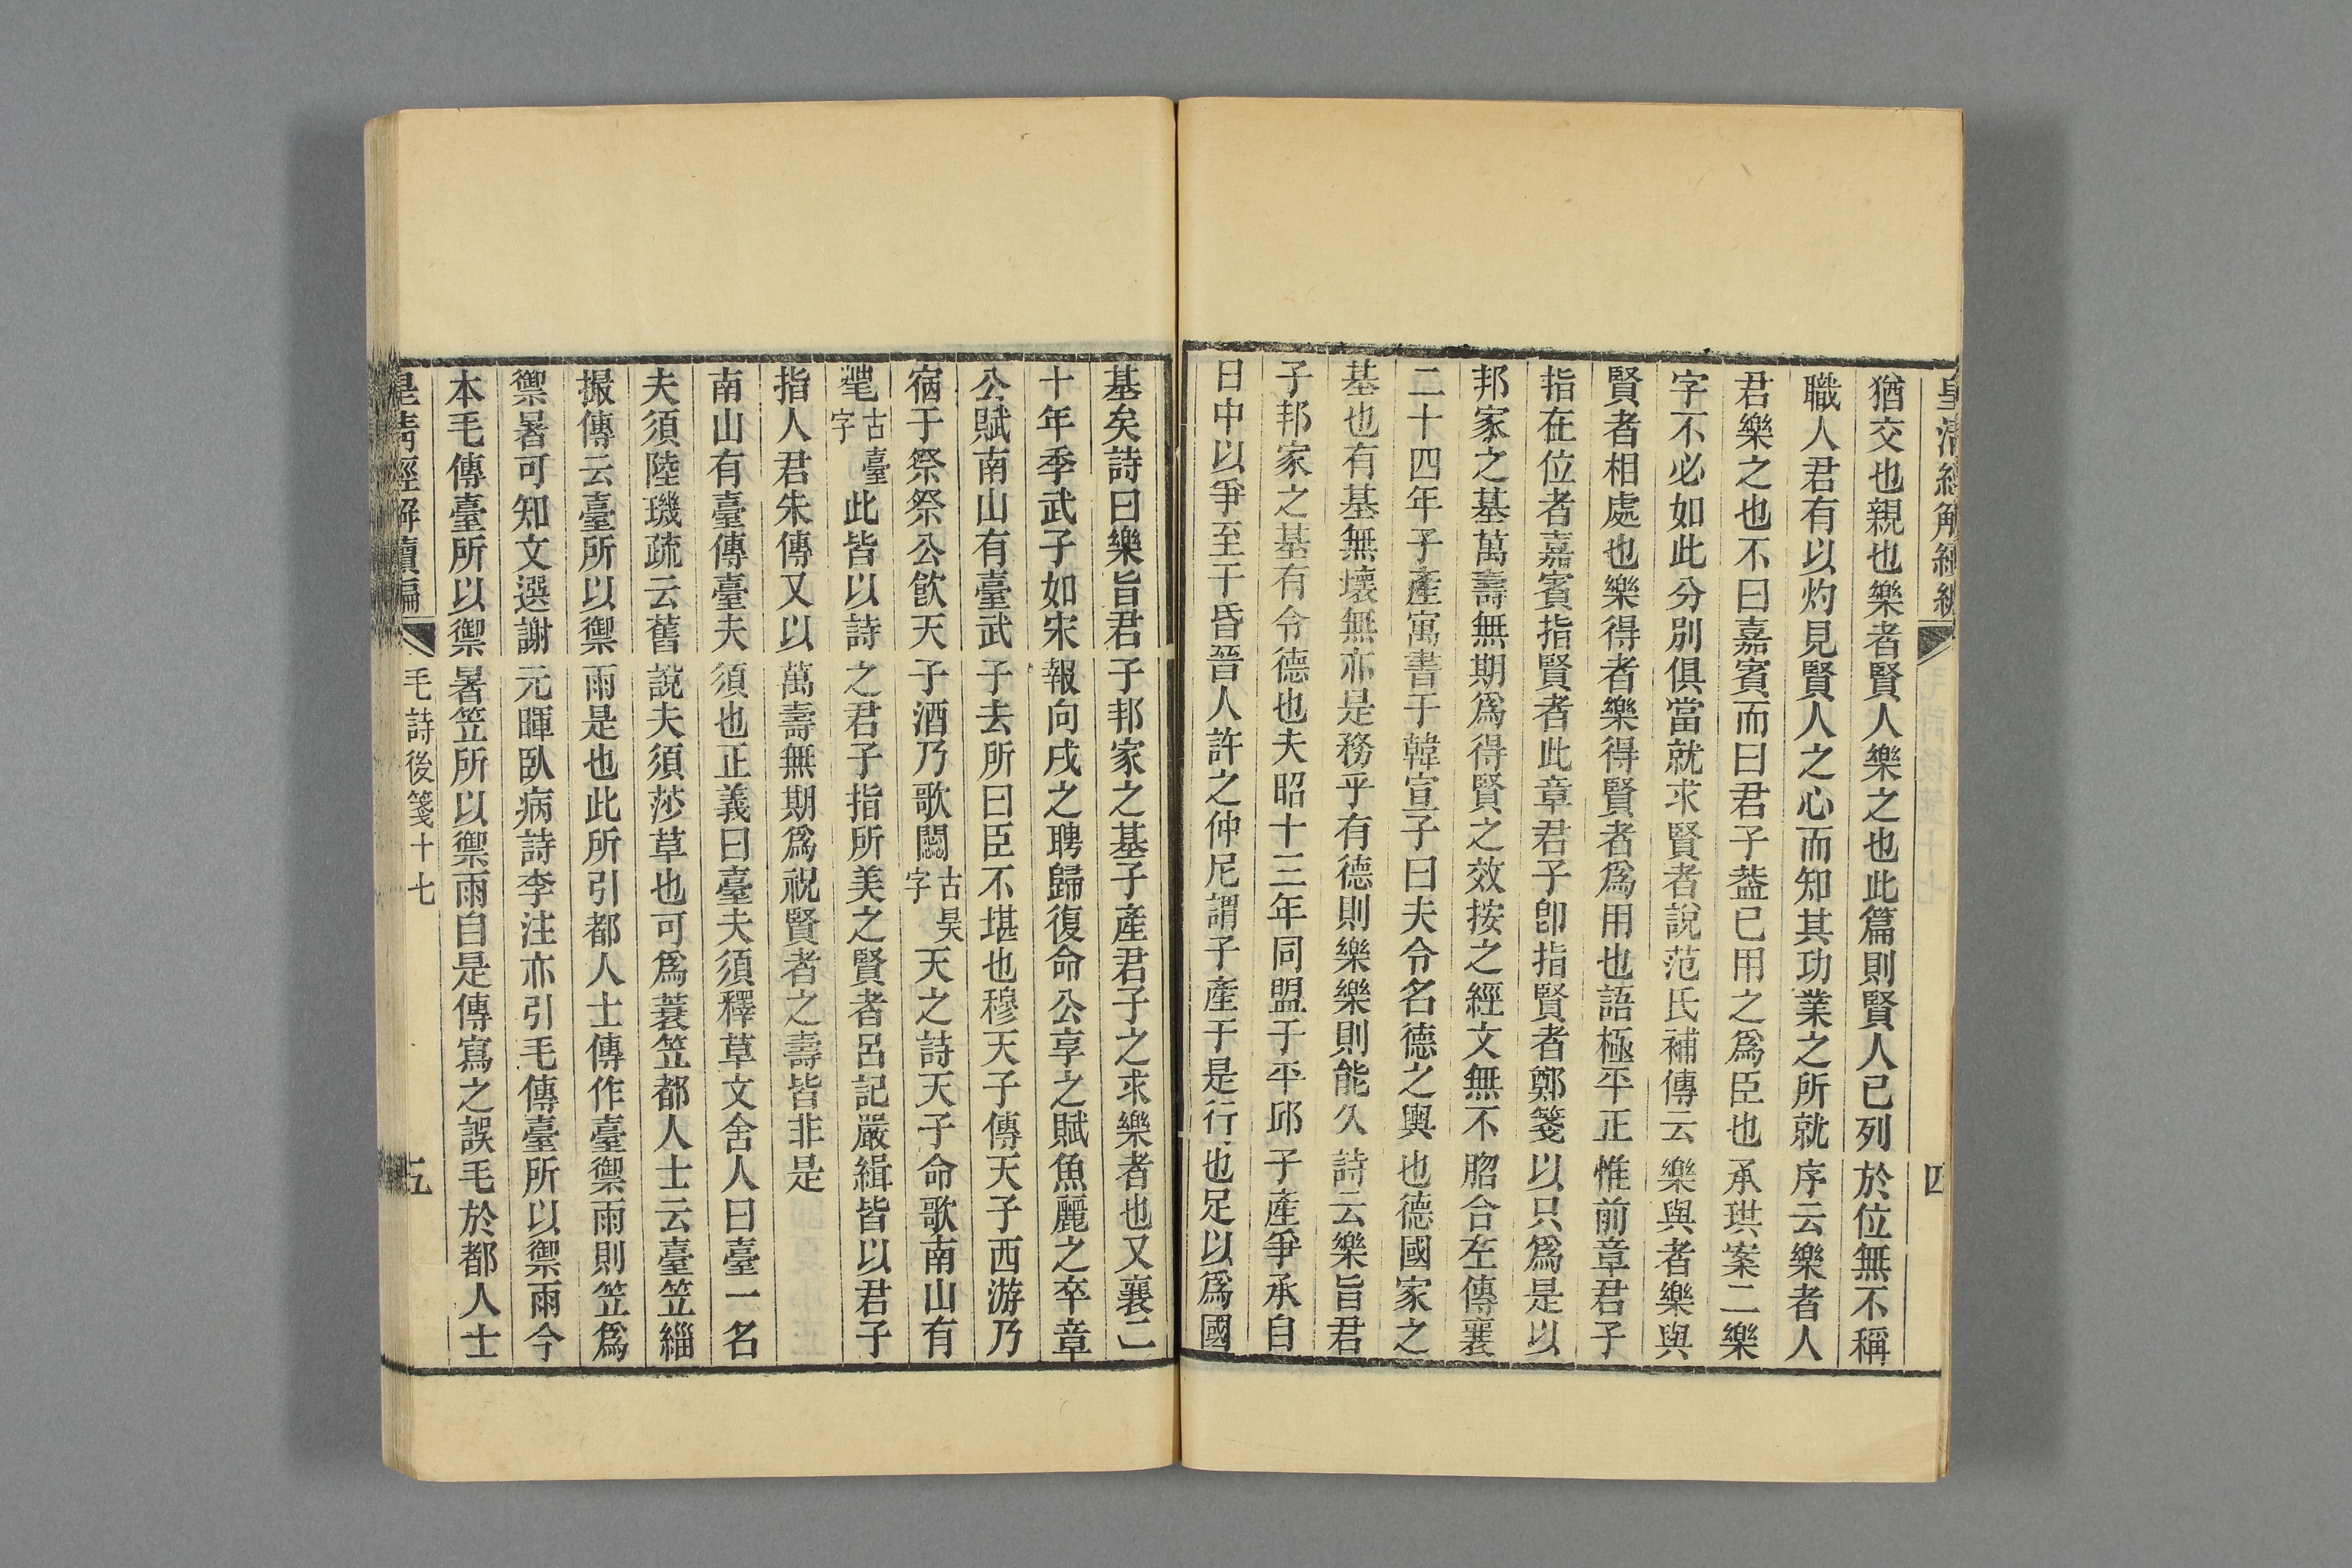 皇清經解續編
四
猶交也親也樂者賢人樂之也此篇則賢人已列於位無不稱
職人君有以灼見賢人之心而知其功業之所就序云樂者人
君樂之也不曰嘉賓而曰君子葢已用之爲臣也承珙案二樂
字不必如此分別俱當就求賢者說范氏補傳云樂與者樂與
賢者相處也樂得者樂得賢者爲用也語極平正惟前章君子
指在位者嘉賓指賢者此章君子卽指賢者鄭箋以只爲是以
邦家之基萬壽無期爲得賢之效按之經文無不脗合左傳襄
二十四年子產寓書于韓宣子曰夫令名德之輿也德國家之
基也有基無壞無亦是務乎有德則樂樂則能久詩云樂旨君
子邦家之基有令德也夫昭十三年同盟于平邱子產爭承自
日中以爭至于昏晉人許之仲尼謂子產于是行也足以爲國
基矣詩曰樂旨君子邦家之基子產君子之求樂者也又襄二
十年季武子如宋報向戌之聘歸復命公享之賦魚麗之卒章
公賦南山有臺武子去所曰臣不堪也穆天子傳天子西游乃
宿于祭祭公飮天子酒乃歌䦹古昊字天之詩天子命歌南山有
古臺字此皆以詩之君子指所美之賢者呂記嚴緝皆以君子
指人君朱傳又以萬壽無期爲祝賢者之壽皆非是
南山有臺傳臺夫須也正義曰臺夫須釋草文舍人曰臺一名
夫須陸璣疏云舊說夫須莎草也可爲蓑笠都人士云臺笠緇
撮傳云臺所以禦雨是也此所引都人士傳作臺禦雨則笠爲
禦暑可知文選謝元暉臥病詩李注亦引毛傳臺所以禦雨今
本毛傳臺所以禦暑笠所以禦雨自是傳寫之誤毛於都人士
皇清經解續編
毛詩後箋十七
五